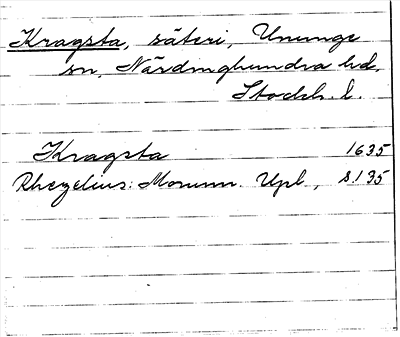 Kragsta, säteri, Ununge
sn, Närdinghundra hd,
Stockh. l.
Kragsta 1635
Rhezelius: Monum. Upl., s. 135